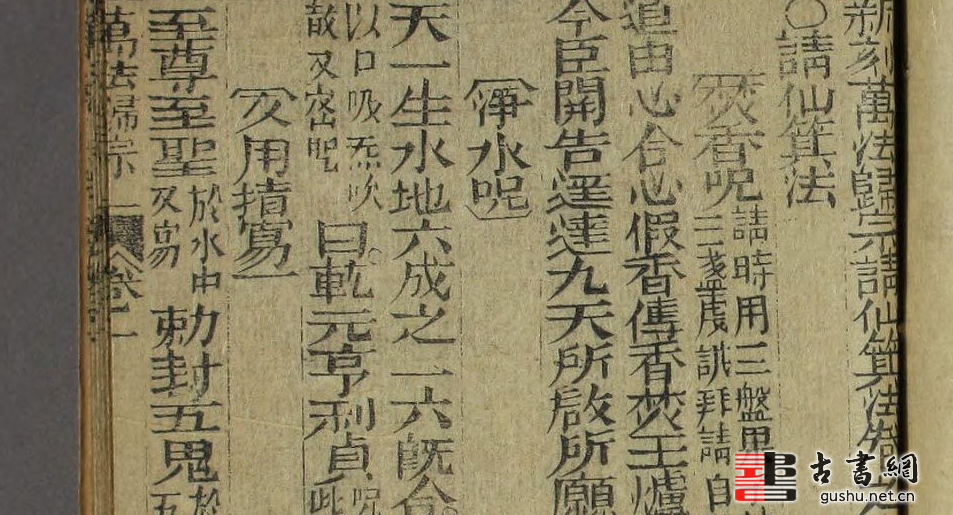 新刻萬法歸宗請仙箕法卷之
○請仙箕法
〔焚香呪 請時用三盤果
三盞虔誠拜請自
道由心合心假香傳香焚玉爐
今臣關告逕達九天所啟所願
〔淨水呪〕
天一生水地六成之一六旣合
以口吸炁吹。呪
故又密呪
曰乾元亨利貞此
〔又用指寫一
至尊至聖 於水中
又寫
勅封五鬼 於
五
萬法歸宗 卷二
古書網
gushu.net.cn